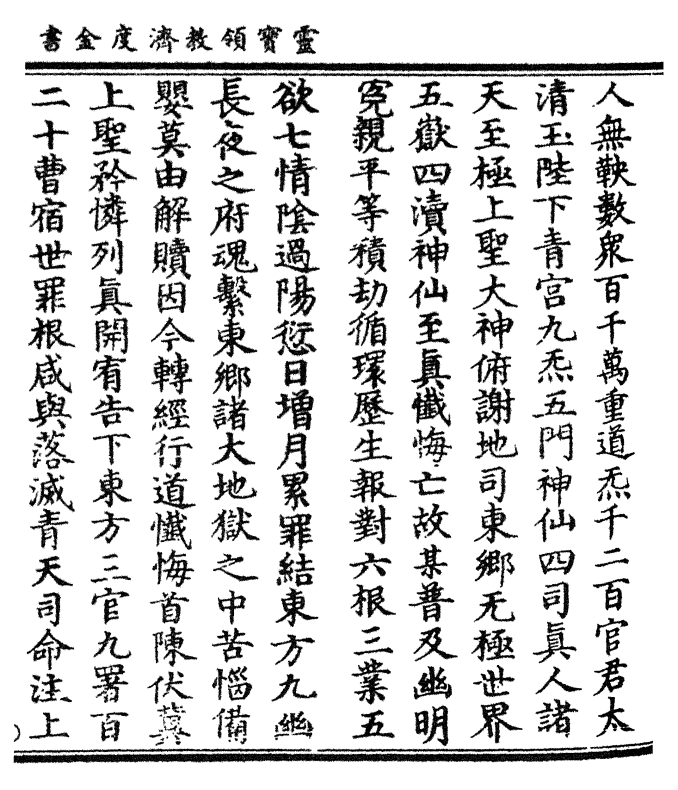 靈寶領教濟度金書
人無鞅數衆百千萬重道炁千二百官君太
清玉陛下青宮九炁五門神仙四司眞人諸
天至極上聖大神俯謝地司東鄉无極世界
五嶽四瀆神仙至眞懺悔亡故某普及幽明
寃親平等積劫循環歷生報對六根三業五
欲七情陰過陽愆日增月累罪結東方九幽
長夜之府魂繫東鄉諸大地獄之中苦惱備
嬰莫由解贖因今轉經行道懺悔首陳伏冀
上聖矜憐列眞開宥告下東方三官九署百
二十曹宿世罪根咸與落滅青天司命注上